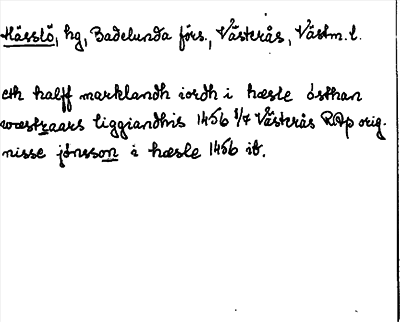 Hässlö, hg, Badelunda förs., Västerås, Västm.l.
eth halff marklandh iordh i hæsle østhan
wæstraars liggiandhis 1456 8/7 Västerås RAp orig.
nisse jónsson i hæsle 1456 ib.